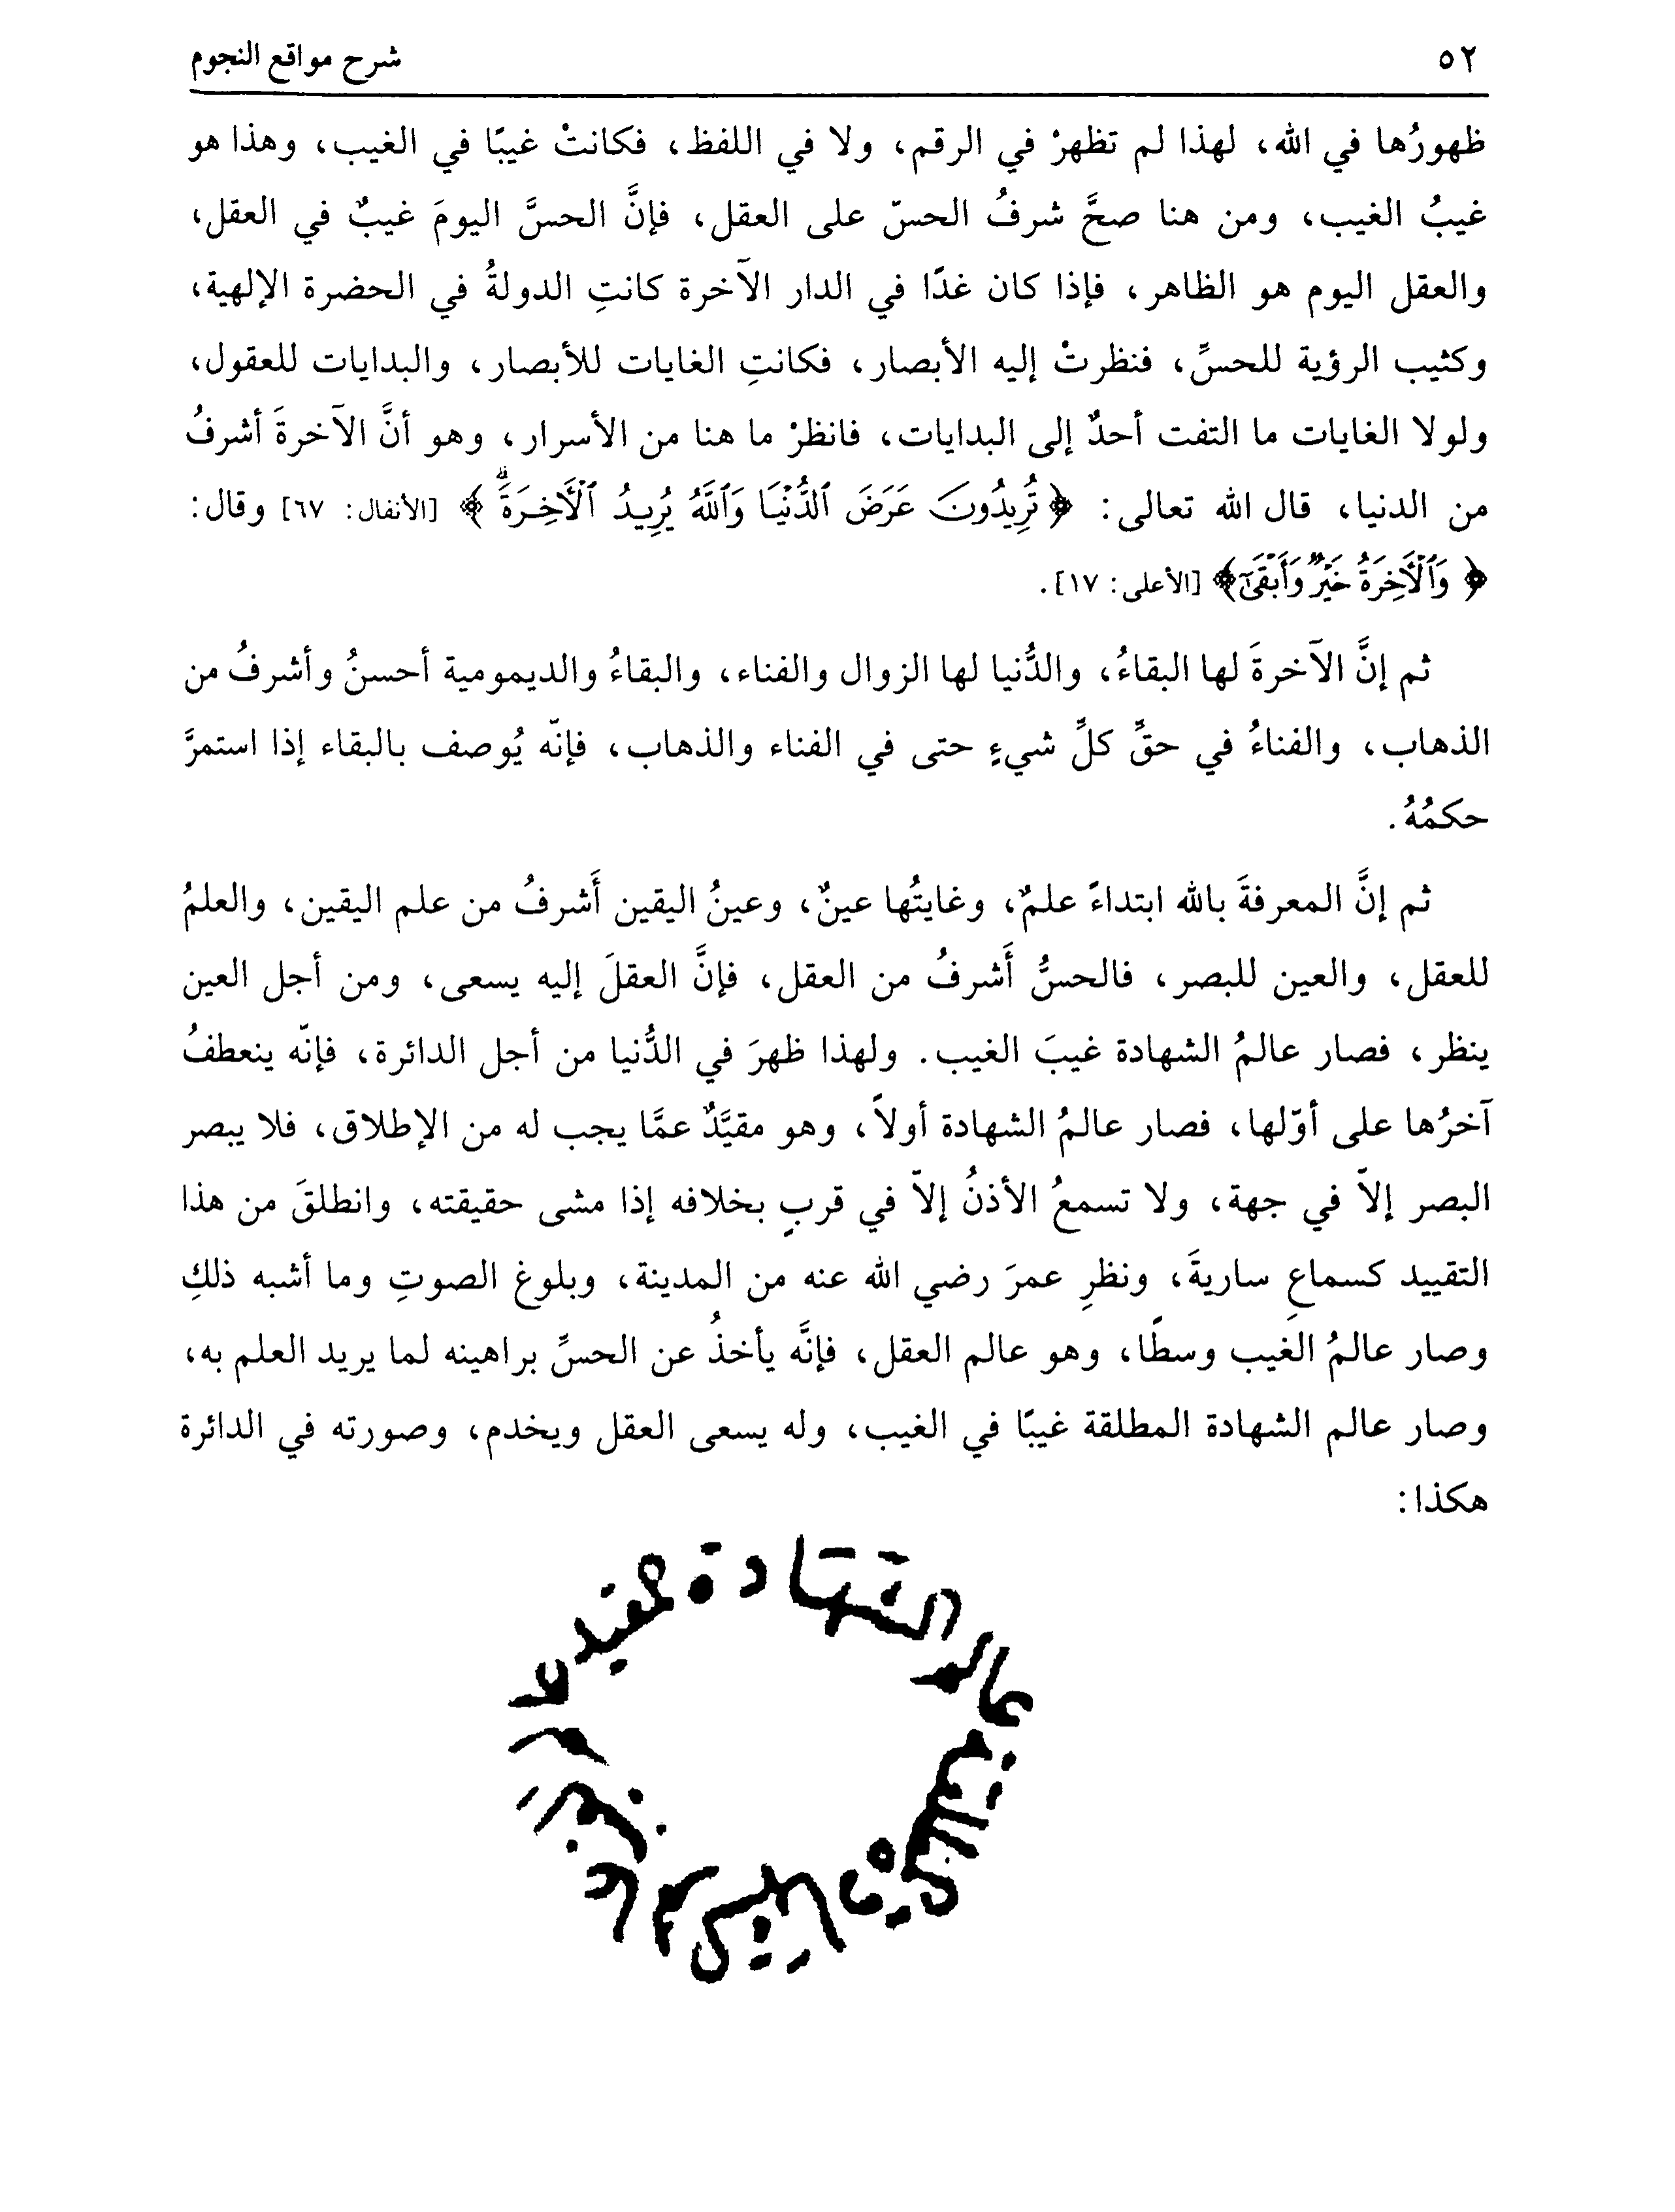 ٥٢
شرح مواقع النجوم
ظهورُها في الله، لهذا لم تظهرْ في الرقم، ولا في اللفظ، فكانتْ غيبًا في الغيب، وهذا هو
غيبُ الغيب، ومن هنا صحَّ شرفُ الحسّ على العقل، فإنَّ الحسَّ اليومَ غيبٌ في العقل،
والعقل اليوم هو الظاهر، فإذا كان غدًا في الدار الآخرة كانتِ الدولةُ في الحضرة الإلهية،
وكثيب الرؤية للحسِّ، فنظرتْ إليه الأبصار، فكانتِ الغايات للأبصار، والبدايات للعقول،
ولولا الغايات ما التفت أحدٌ إلى البدايات، فانظرْ ما هنا من الأسرار، وهو أنَّ الآخرةَ أشرفُ
من الدنيا، قال الله تعالى: ﴿تُرِيدُونَ عَرَضَ ٱلدُّنْيَا وَٱللَّهُ يُرِيدُ ٱلْآخِرَةَ ۗ﴾ [الأنفال: ٦٧] وقال:
﴿وَٱلْآخِرَةُ خَيْرٌ وَأَبْقَىٰٓ﴾ [الأعلى: ١٧].
ثم إنَّ الآخرةَ لها البقاءُ، والدُّنيا لها الزوال والفناء، والبقاءُ والديمومية أحسنُ وأشرفُ من
الذهاب، والفناءُ في حقِّ كلِّ شيءٍ حتى في الفناء والذهاب، فإنّه يُوصف بالبقاء إذا استمرَّ
حكمُهُ.
ثم إنَّ المعرفةَ بالله ابتداءً علمٌ، وغايتُها عينٌ، وعينُ اليقين أَشرفُ من علم اليقين، والعلمُ
للعقل، والعين للبصر، فالحسُّ أَشرفُ من العقل، فإنَّ العقلَ إليه يسعى، ومن أجل العين
ينظر، فصار عالمُ الشهادة غيبَ الغيب. ولهذا ظهرَ في الدُّنيا من أجل الدائرة، فإنّه ينعطفُ
آخرُها على أوّلها، فصار عالمُ الشهادة أولاً، وهو مقيَّدٌ عمَّا يجب له من الإطلاق، فلا يبصر
البصر إلاّ في جهة، ولا تسمعُ الأذنُ إلاّ في قربٍ بخلافه إذا مشى حقيقته، وانطلقَ من هذا
التقييد كسماعِ ساريةَ، ونظرِ عمرَ رضي الله عنه من المدينة، وبلوغ الصوتِ وما أشبه ذلكِ
وصار عالمُ الغيب وسطًا، وهو عالم العقل، فإنَّه يأخذُ عن الحسِّ براهينه لما يريد العلم به،
وصار عالم الشهادة المطلقة غيبًا في الغيب، وله يسعى العقل ويخدم، وصورته في الدائرة
هكذا:
عالم الشهادة مقيد
عالم